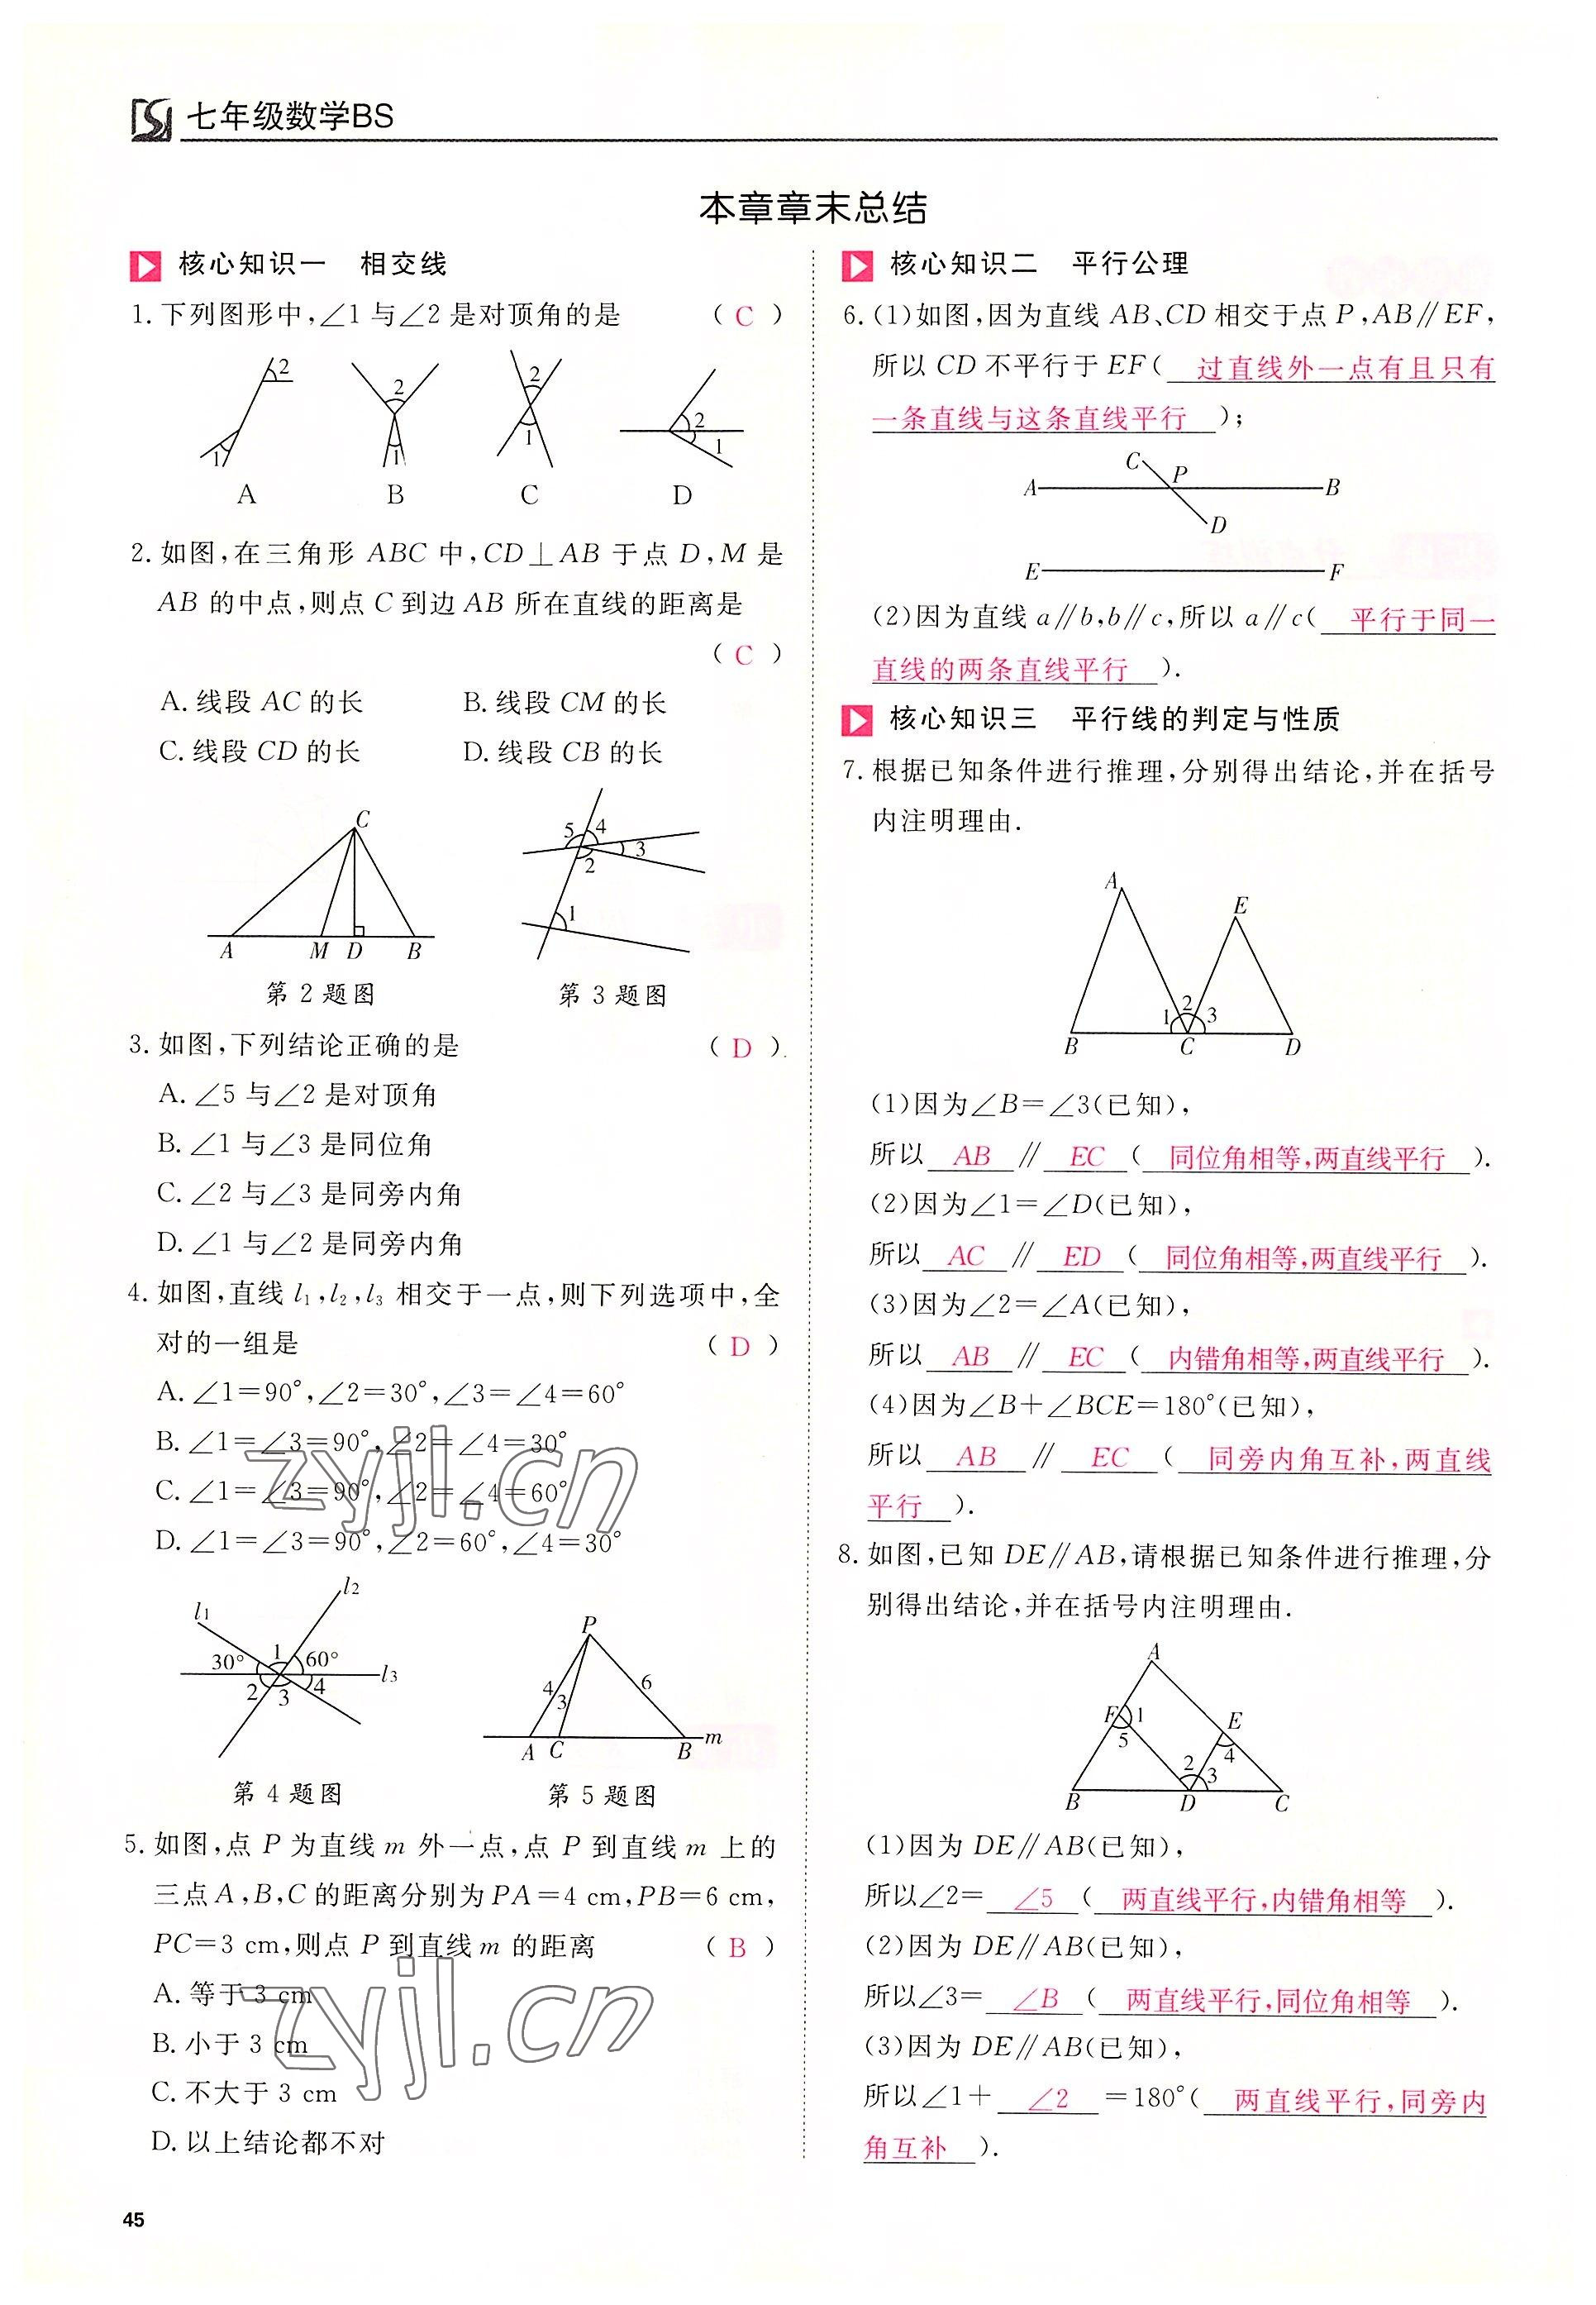 七年级数学BS
本章章末总结
核心知识一 相交线
1. 下列图形中,∠1与∠2是对顶角的是 ( C )
2 1 2 1 2 1 2 1
A B C D
2. 如图,在三角形 ABC 中,CD⊥AB 于点 D,M 是
AB 的中点,则点 C 到边 AB 所在直线的距离是
( C )
A. 线段 AC 的长 B. 线段 CM 的长
C. 线段 CD 的长 D. 线段 CB 的长
C A M D B
5 4 3 2 1
第 2 题图 第 3 题图
3. 如图,下列结论正确的是 ( D )
A. ∠5 与∠2 是对顶角
B. ∠1 与∠3 是同位角
C. ∠2 与∠3 是同旁内角
D. ∠1 与∠2 是同旁内角
4. 如图,直线 l1,l2,l3 相交于一点,则下列选项中,全
对的一组是 ( D )
A. ∠1=90°,∠2=30°,∠3=∠4=60°
B. ∠1=∠3=90°,∠2=∠4=30°
C. ∠1=∠3=90°,∠2=∠4=60°
D. ∠1=∠3=90°,∠2=60°,∠4=30°
l1 l2 l3 30° 1 60° 2 3 4
P 4 3 6 A C B m
第 4 题图 第 5 题图
5. 如图,点 P 为直线 m 外一点,点 P 到直线 m 上的
三点 A,B,C 的距离分别为 PA=4 cm,PB=6 cm,
PC=3 cm,则点 P 到直线 m 的距离 ( B )
A. 等于 3 cm
B. 小于 3 cm
C. 不大于 3 cm
D. 以上结论都不对
45
核心知识二 平行公理
6. (1)如图,因为直线 AB、CD 相交于点 P,AB∥EF,
所以 CD 不平行于 EF( 过直线外一点有且只有
一条直线与这条直线平行 );
C P
A B
D
E F
(2)因为直线 a∥b,b∥c,所以 a∥c( 平行于同一
直线的两条直线平行 ).
核心知识三 平行线的判定与性质
7. 根据已知条件进行推理,分别得出结论,并在括号
内注明理由.
A E
1 2 3
B C D
(1)因为∠B=∠3(已知),
所以 AB ∥ EC ( 同位角相等,两直线平行 ).
(2)因为∠1=∠D(已知),
所以 AC ∥ ED ( 同位角相等,两直线平行 ).
(3)因为∠2=∠A(已知),
所以 AB ∥ EC ( 内错角相等,两直线平行 ).
(4)因为∠B+∠BCE=180°(已知),
所以 AB ∥ EC ( 同旁内角互补,两直线
平行 ).
8. 如图,已知 DE∥AB,请根据已知条件进行推理,分
别得出结论,并在括号内注明理由.
A
F 1 E
5 2 3 4
B D C
(1)因为 DE∥AB(已知),
所以∠2= ∠5 ( 两直线平行,内错角相等 ).
(2)因为 DE∥AB(已知),
所以∠3= ∠B ( 两直线平行,同位角相等 ).
(3)因为 DE∥AB(已知),
所以∠1+ ∠2 =180°( 两直线平行,同旁内
角互补 ).
zyjl.cn
zyjl.cn